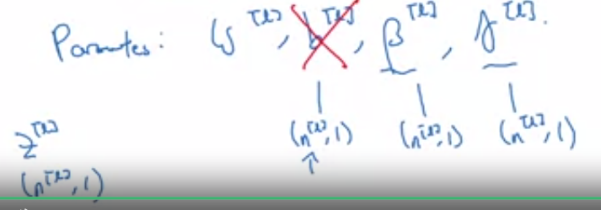 Parameters: W^[l], b^[l], β^[l], γ^[l].
(n^[l], 1) (n^[l], 1) (n^[l], 1)
↑
z^[l]
(n^[l], 1)